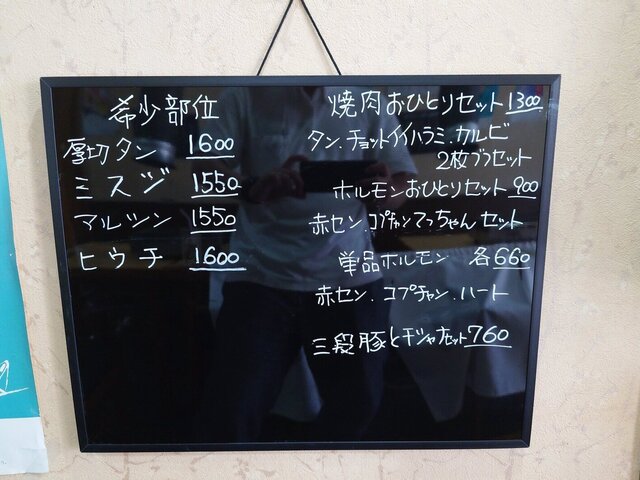 希少部位
厚切タン 1600
ミスジ 1550
マルシン 1550
ヒウチ 1600
焼肉おひとりセット 1300
タン.チョットイイハラミ.カルビ
2枚づつセット
ホルモンおひとりセット 900
赤セン.コプチャンてっちゃんセット
単品ホルモン 各660
赤セン.コプチャン.ハート
三段豚とチシャセット 760